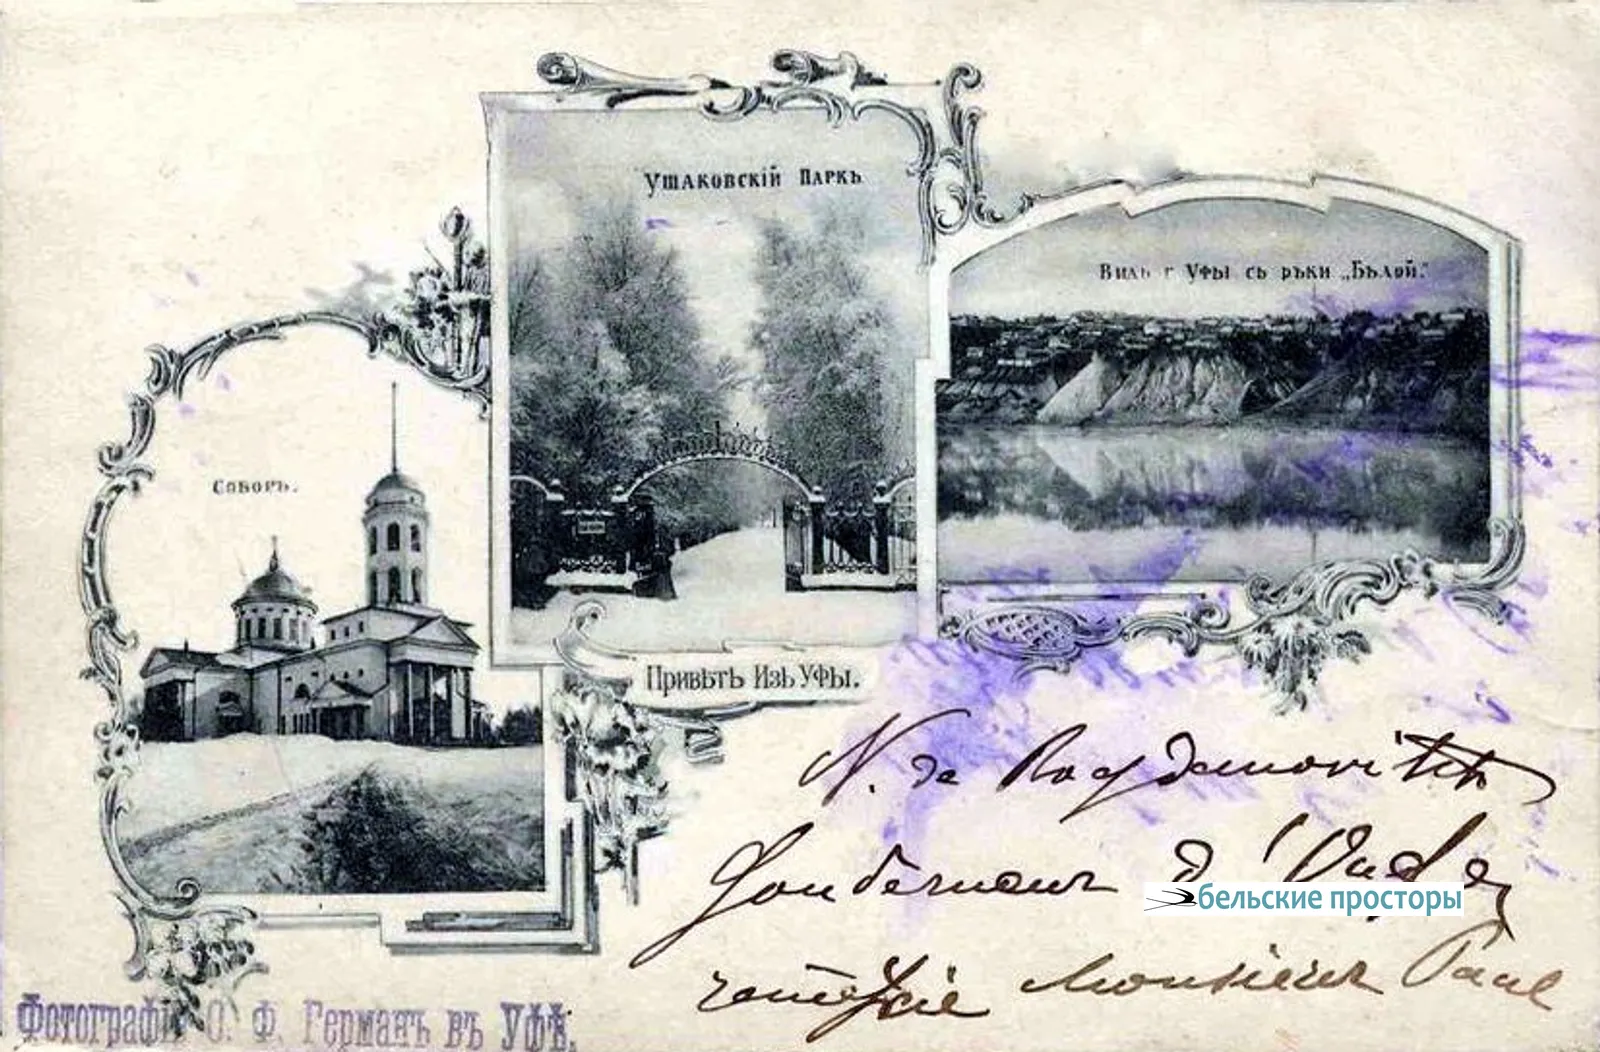 Ушаковскій Паркъ
Видъ г Уфы съ рѣки „Бѣлой."
Соборъ.
Привѣтъ Изъ Уфы.
N. de
Gouverneur d'Oufa
remercie Monsieur Paul
бельские просторы
Фотографія О. Ф. Германъ въ Уфѣ.